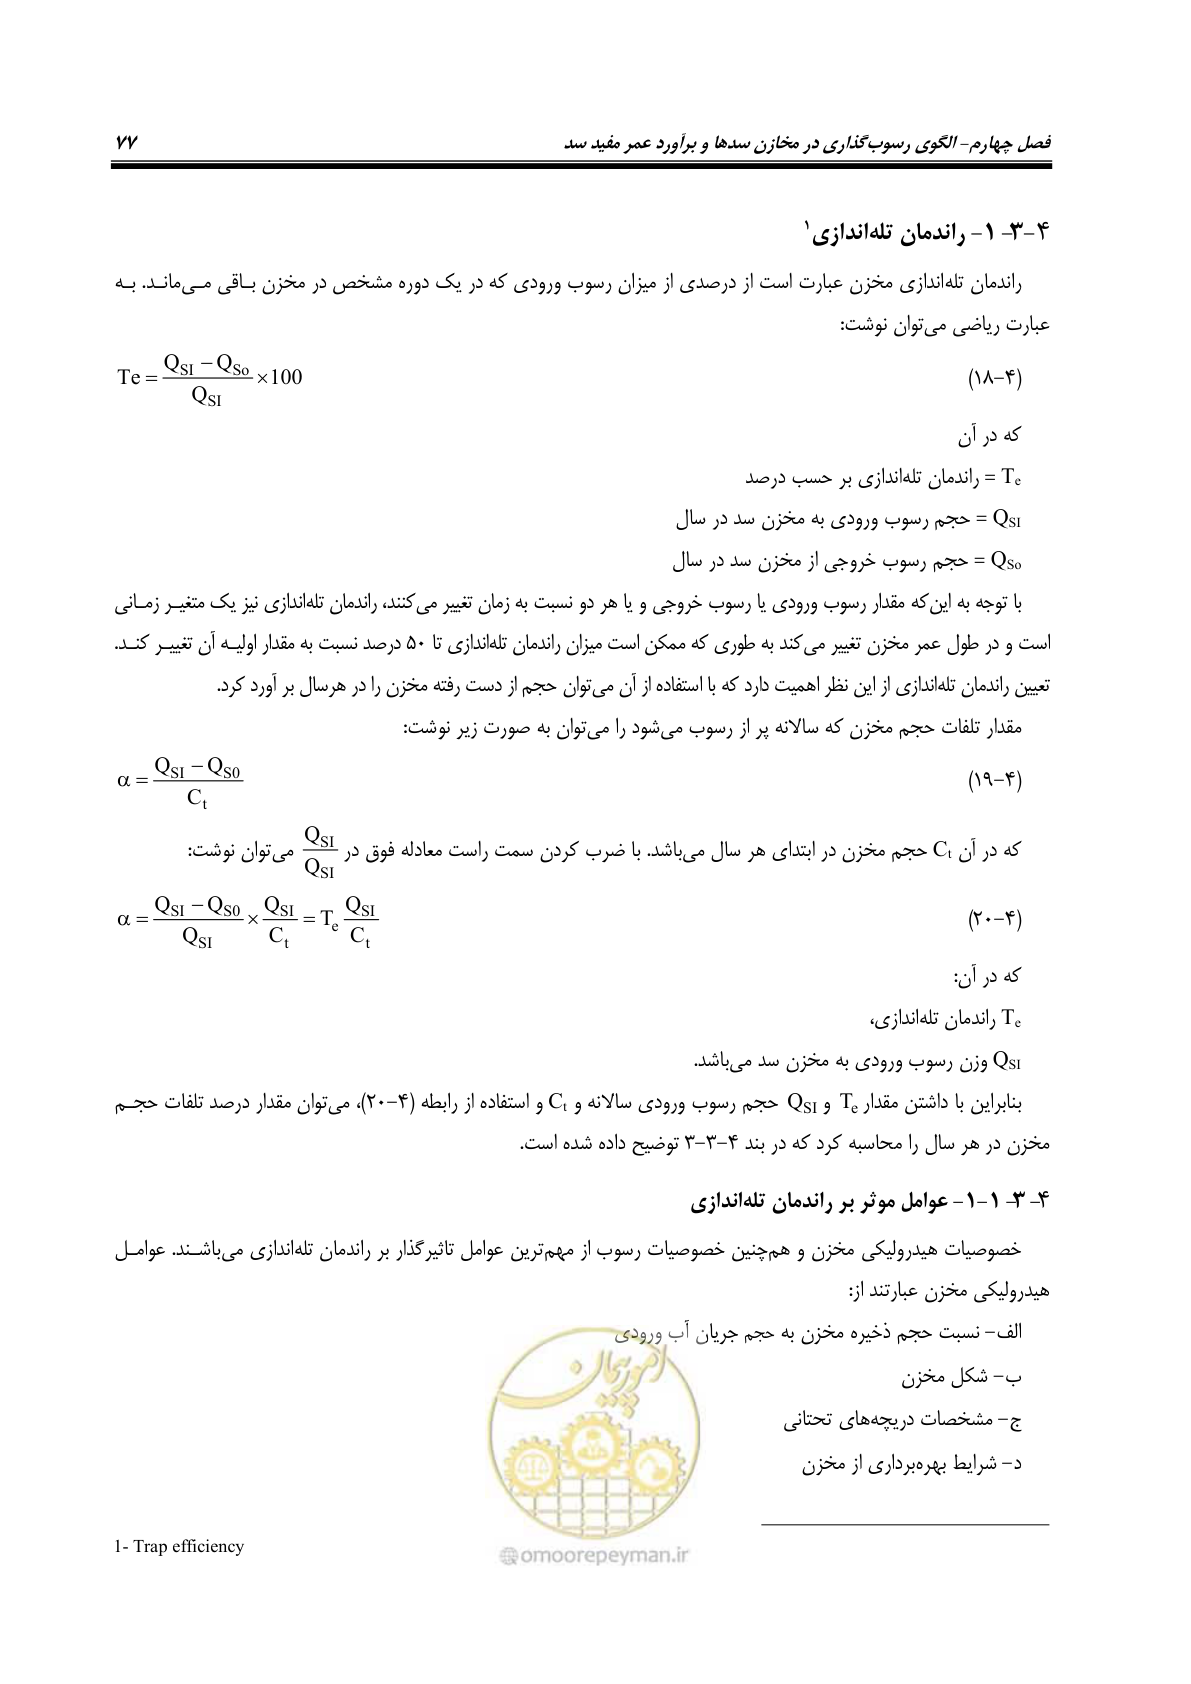 فصل چهارم- الگوی رسوب‌گذاری در مخازن سدها و برآورد عمر مفید سد ۷۷
۴-۳-۱- راندمان تله‌اندازی۱
راندمان تله‌اندازی مخزن عبارت است از درصدی از میزان رسوب ورودی که در یک دوره مشخص در مخزن بـاقی مـی‌مانـد. بـه
عبارت ریاضی می‌توان نوشت:
Te = (Q_SI − Q_So) / Q_SI ×100 (۴-۱۸)
که در آن
Te = راندمان تله‌اندازی بر حسب درصد
QSI = حجم رسوب ورودی به مخزن سد در سال
QSo = حجم رسوب خروجی از مخزن سد در سال
با توجه به این‌که مقدار رسوب ورودی یا رسوب خروجی و یا هر دو نسبت به زمان تغییر می‌کنند، راندمان تله‌اندازی نیز یک متغیـر زمـانی
است و در طول عمر مخزن تغییر می‌کند به طوری که ممکن است میزان راندمان تله‌اندازی تا ۵۰ درصد نسبت به مقدار اولیـه آن تغییـر کنـد.
تعیین راندمان تله‌اندازی از این نظر اهمیت دارد که با استفاده از آن می‌توان حجم از دست رفته مخزن را در هرسال بر آورد کرد.
مقدار تلفات حجم مخزن که سالانه پر از رسوب می‌شود را می‌توان به صورت زیر نوشت:
α = (Q_SI − Q_S0) / C_t (۴-۱۹)
که در آن Ct حجم مخزن در ابتدای هر سال می‌باشد. با ضرب کردن سمت راست معادله فوق در Q_SI / Q_SI می‌توان نوشت:
α = (Q_SI − Q_S0) / Q_SI × Q_SI / C_t = T_e Q_SI / C_t (۴-۲۰)
که در آن:
Te راندمان تله‌اندازی،
QSI وزن رسوب ورودی به مخزن سد می‌باشد.
بنابراین با داشتن مقدار Te و QSI حجم رسوب ورودی سالانه و Ct و استفاده از رابطه (۴-۲۰)، می‌توان مقدار درصد تلفات حجـم
مخزن در هر سال را محاسبه کرد که در بند ۴-۳-۳ توضیح داده شده است.
۴-۳-۱-۱- عوامل موثر بر راندمان تله‌اندازی
خصوصیات هیدرولیکی مخزن و هم‌چنین خصوصیات رسوب از مهم‌ترین عوامل تاثیرگذار بر راندمان تله‌اندازی می‌باشـند. عوامـل
هیدرولیکی مخزن عبارتند از:
الف- نسبت حجم ذخیره مخزن به حجم جریان آب ورودی
ب- شکل مخزن
ج- مشخصات دریچه‌های تحتانی
د- شرایط بهره‌برداری از مخزن
امور پیمان
1- Trap efficiency
@omoorepeyman.ir